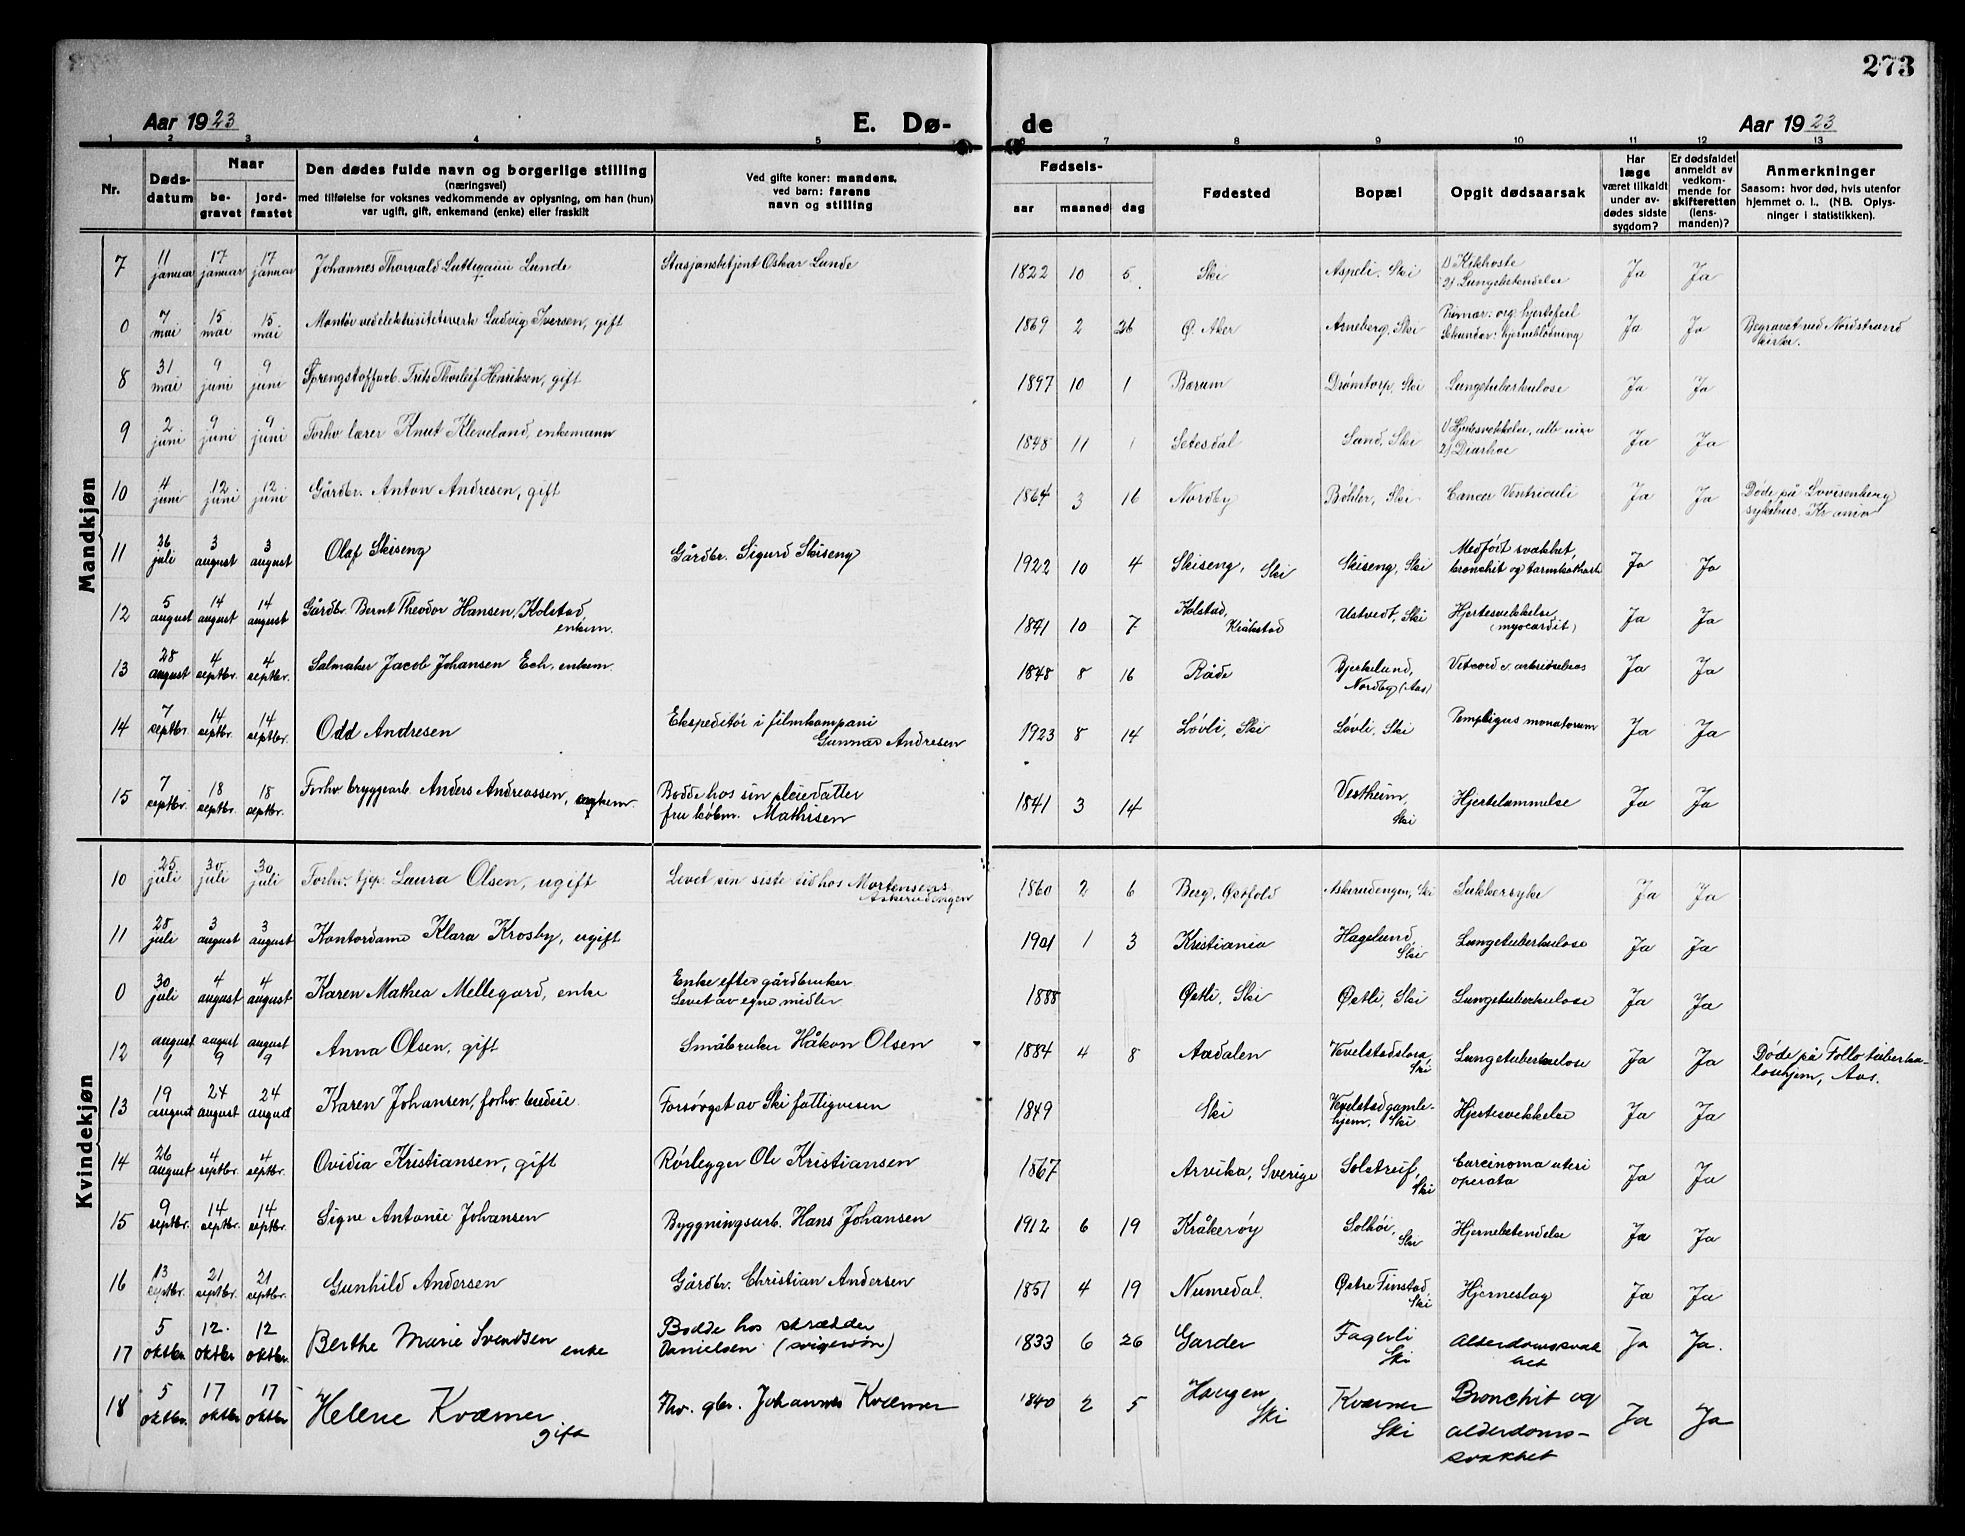 273
Aar 1923
E. Dø-
de
Aar 1923
1 2 3 4 5 6 7 8 9 10 11 12 13
Nr.
Døds-
datum
Naar
be-
gravet
jord-
fæstet
Den dødes fulde navn og borgerlige stilling
(næringsvei)
med tilføielse for voksnes vedkommende av oplysning, om han (hun)
var ugift, gift, enkemand (enke) eller fraskilt
Ved gifte koner: mandens,
ved barn: farens
navn og stilling
Fødsels-
aar maaned dag
Fødested
Bopæl
Opgit dødsaarsak
Har
læge
været tilkaldt
under av-
dødes sidste
sygdom?
Er dødsfaldet
anmeldt av
vedkom-
mende for
skifteretten
(lens-
manden)?
Anmerkninger
Saasom: hvor død, hvis utenfor
hjemmet o. l., (NB. Oplys-
ninger i statistikken).
Mandkjøn
7 11 januar 17 januar 17 januar Johannes Thorvald Lunde Stasjonsbetjent Oskar Lunde 1822 10 5 Ski Aspeli, Ski 1) Kikhoste
2) Lungebetendelse Ja Ja
0 7 mai 15 mai 15 mai Montør ved elektrisitetsverk Ludvig Iversen, gift 1869 2 26 Ø. Aker Arneberg, Ski Primær: org. hjertefeil
Sekundær: hjerneblødning Ja Ja Begravet ved Nordstrand
kirke.
8 31 mai 9 juni 9 juni Sprengstoffarb. Frits Thorleif Henriksen, gift 1897 10 1 Bærum Drømtorp, Ski Lungetuberkulose Ja Ja
9 2 juni 9 juni 9 juni Forhv lærer Knut Kleveland, enkemann 1848 11 1 Setesdal Sand, Ski 1) Hjertesvekkelse,
2) Diarhoe Ja Ja
10 4 juni 12 juni 12 juni Gårdbr. Anton Andresen, gift 1864 3 16 Nordby Bøhler, Ski Cancer Ventriculi Ja Ja Døde på Lovisenberg
sykehus. Kr.ania
11 26 juli 3 august 3 august Olaf Skiseng Gårdbr. Sigurd Skiseng 1922 10 4 Skiseng, Ski Skiseng, Ski Medfødt svakhet,
bronchit og tarmkatharh Ja Ja
12 5 august 14 august 14 august Gårdbr. Bernt Theodor Hansen, Kolstad,
enkem. 1841 10 7 Kolstad,
Kråkstad Ustvedt, Ski Hjertesvekkelse,
(myocardit) Ja Ja
13 28 august 4 septbr. 4 septbr. Salmaker Jacob Johansen Ech, enkem. 1848 8 16 Råde Bjerkelund,
Nordby (Aas) Ja Ja
14 7 septbr. 14 septbr. 14 septbr. Odd Andresen Ekspeditør i filmkompani
Gunnar Andresen 1923 8 14 Løvli, Ski Løvli, Ski Pemphigus Ja Ja
15 7 septbr. 18 septbr. 18 septbr. Forhv bryggearb. Anders Andreassen, enkem. Bodde hos sin pleiedatter
fru købm. Mathisen 1841 3 14 Vestheim,
Ski Hjertelammelse Ja Ja
Kvindekjøn
10 25 juli 30 juli 30 juli Forhv. tjep. Laura Olsen, ugift Levet sin siste tid hos Mortensens
Askerudengen 1860 2 6 Berg, Østfold Askerudengen, Ski Sukkersyke Ja Ja
11 28 juli 3 august 3 august Kontordame Klara Krosby, ugift 1901 1 3 Kristiania Hagelund,
Ski Lungetuberkulose Ja Ja
0 30 juli 4 august 4 august Karen Mathea Mellegard, enke Enke efter gårdbruker
Levet av egne midler 1888 Østli, Ski Østli, Ski Lungetuberkulose Ja Ja
12 august 1 august 9 august 9 Anna Olsen, gift Småbruker Håkon Olsen 1884 4 8 Aadalen Vevelstadslora,
Ski Lungetuberkulose Ja Ja Døde på Follo tuberku-
losehjem, Aas.
13 19 august 24 august 24 august Karen Johansen, forhv. budeie Forsørget av Ski fattigvesen 1849 Ski Vevelstad gamle-
hjem, Ski Hjertesvekkelse Ja Ja
14 26 august 4 septbr. 4 septbr. Ovidia Kristiansen, gift Rørlegger Ole Kristiansen 1867 Arvika, Sverige Solstreif,
Ski Carcinoma uteri
operata Ja Ja
15 9 septbr. 14 septbr. 14 septbr. Signe Antonie Johansen Byggningsarb. Hans Johansen 1912 6 19 Kråkerøy Solhøi,
Ski Hjernebetendelse Ja Ja
16 13 septbr. 21 septbr. 21 septbr. Gunhild Andersen Gårdbr. Christian Andersen 1851 4 19 Numedal. Østre Finstad,
Ski Hjerneslag Ja Ja
17 5 oktbr. 12. oktbr 12 oktbr. Berthe Marie Svendsen
enke Bodde hos skrædder
Danielsen (svigersøn) 1833 6 26 Garder Fagerli
Ski Alderdomssvak
het Ja Ja.
18 5 oktbr. 17 oktbr 17 oktbr Helene Kværner
gift Fhv. gbr. Johannes Kværner 1840 2 5 Haugen
Ski Kværner
Ski Bronchit og
alderdoms-
svakhet Ja Ja